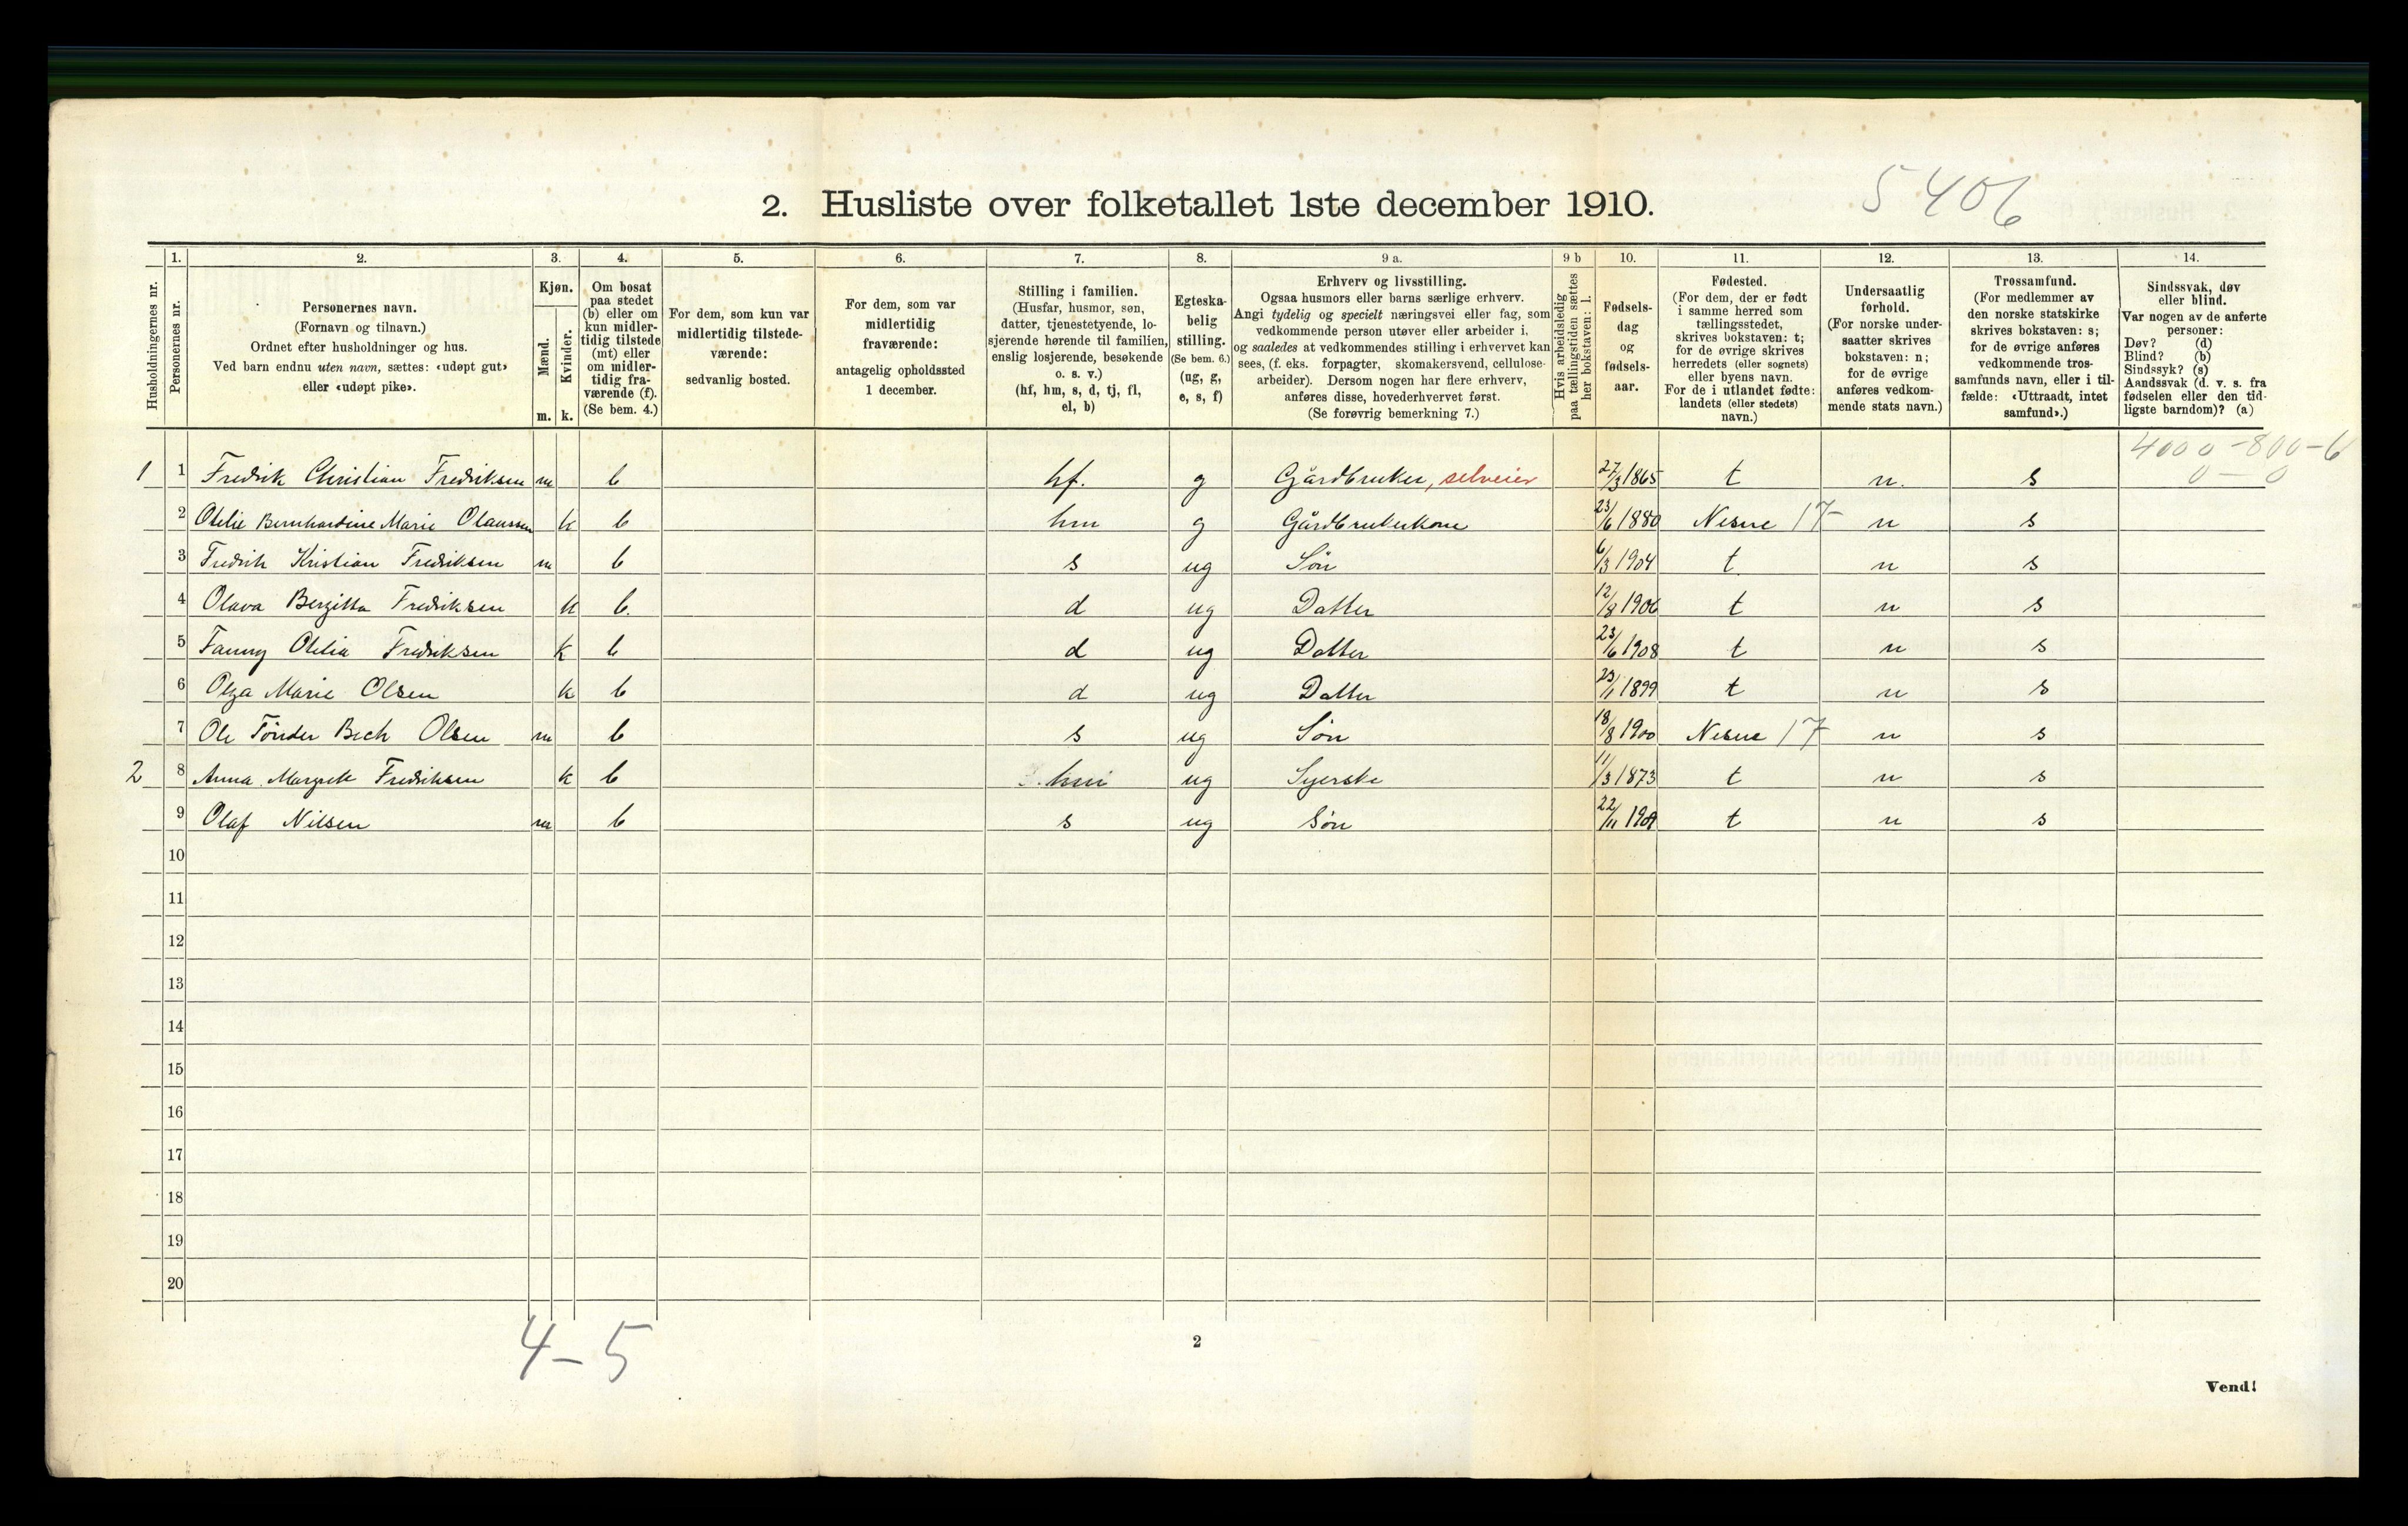 5406
2. Husliste over folketallet 1ste december 1910.
Husholdningernes nr.
1.
Personernes nr.
2.
Personernes navn.
(Fornavn og tilnavn.)
Ordnet efter husholdninger og hus.
Ved barn endnu uten navn, sættes: «udøpt gut»
eller «udøpt pike».
3.
Kjøn.
Mænd.
Kvinder.
m. k.
4.
Om bosat
paa stedet
(b) eller om
kun midler-
tidig tilstede
(mt) eller
om midler-
tidig fra-
værende (f).
(Se bem. 4.)
5.
For dem, som kun var
midlertidig tilstede-
værende:
sedvanlig bosted.
6.
For dem, som var
midlertidig
fraværende:
antagelig opholdssted
1 december.
7.
Stilling i familien.
(Husfar, husmor, søn,
datter, tjenestetyende, lo-
sjerende hørende til familien,
enslig losjerende, besøkende
o. s. v.)
(hf, hm, s, d, tj, fl,
el, b)
8.
Egteska-
belig
stilling.
(Se bem. 6.)
(ug, g,
e, s, f)
9 a.
Erhverv og livsstilling.
Ogsaa husmors eller barns særlige erhverv.
Angi tydelig og specielt næringsvei eller fag, som
vedkommende person utøver eller arbeider i,
og saaledes at vedkommendes stilling i erhvervet kan
sees, (f. eks. forpagter, skomakersvend, cellulose-
arbeider). Dersom nogen har flere erhverv,
anføres disse, hovederhvervet først.
(Se forøvrig bemerkning 7.)
9 b
Hvis arbeidsledig
paa tællingstiden sættes
her bokstaven: l.
10.
Fødsels-
dag
og
fødsels-
aar.
11.
Fødested.
(For dem, der er født
i samme herred som
tællingsstedet,
skrives bokstaven: t;
for de øvrige skrives
herredets (eller sognets)
eller byens navn.
For de i utlandet fødte:
landets (eller stedets)
navn.)
12.
Undersaatlig
forhold.
(For norske under-
saatter skrives
bokstaven: n;
for de øvrige
anføres vedkom-
mende stats navn.)
13.
Trossamfund.
(For medlemmer av
den norske statskirke
skrives bokstaven: s;
for de øvrige anføres
vedkommende tros-
samfunds navn, eller i til-
fælde: «Uttraadt, intet
samfund».)
14.
Sindssvak, døv
eller blind.
Var nogen av de anførte
personer:
Døv? (d)
Blind? (b)
Sindssyk? (s)
Aandssvak (d. v. s. fra
fødselen eller den tid-
ligste barndom)? (a)
4000-800-6
0-0
1 1 Fredrik Christian Fredriksen m b hf. g Gårdbruker, selveier 27/3 1865 t n. s
2 Otelie Bernhardine Marie Olaussen k b hm g Gårdbrukerkone 23/6 1880 Nesne 17 n s
3 Fredrik Kristian Fredriksen m b s ug Søn 6/3 1904 t n s
4 Olava Bergitta Fredriksen k b. d ug Datter 12/8 1906 t n s
5 Fanny Otelia Fredriksen k b d ug Datter 23/6 1908 t n s
6 Olga Marie Olsen k b d ug Datter 23/11 1899 t n s
7 Ole Tønder Bech Olsen m b s ug Søn 18/8 1900 Nesne 17 n s
2 8 Anna Margrete Fredriksen k b hm ug Syerske 11/3 1873 t n s
9 Olaf Nilsen m b s ug Søn 22/11 1904 t n s
10
11
12
13
14
15
16
17
18
19
20
4-5
2
Vend!